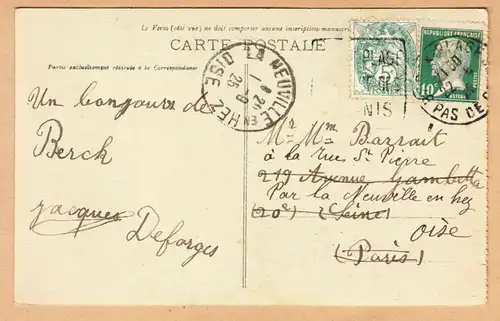 Le Verso (côté vue) ne doit comporter aucune inscription manuscrite
CARTE POSTALE
Partie exclusivement réservée à la Correspondance.
LA NEUVILLE EN HEZ OISE
20
1 - 9
25
PLAGE
NIS
5
PLAGE
PAS DE
10
Un bonjour de
Berck
Jacques
Deforges
Mr Mme Bazzait
à la Rue St Pierre
219 Avenue Gambetta
Par la Neuville en hez
(20e) (Seine)
Oise
(Paris)